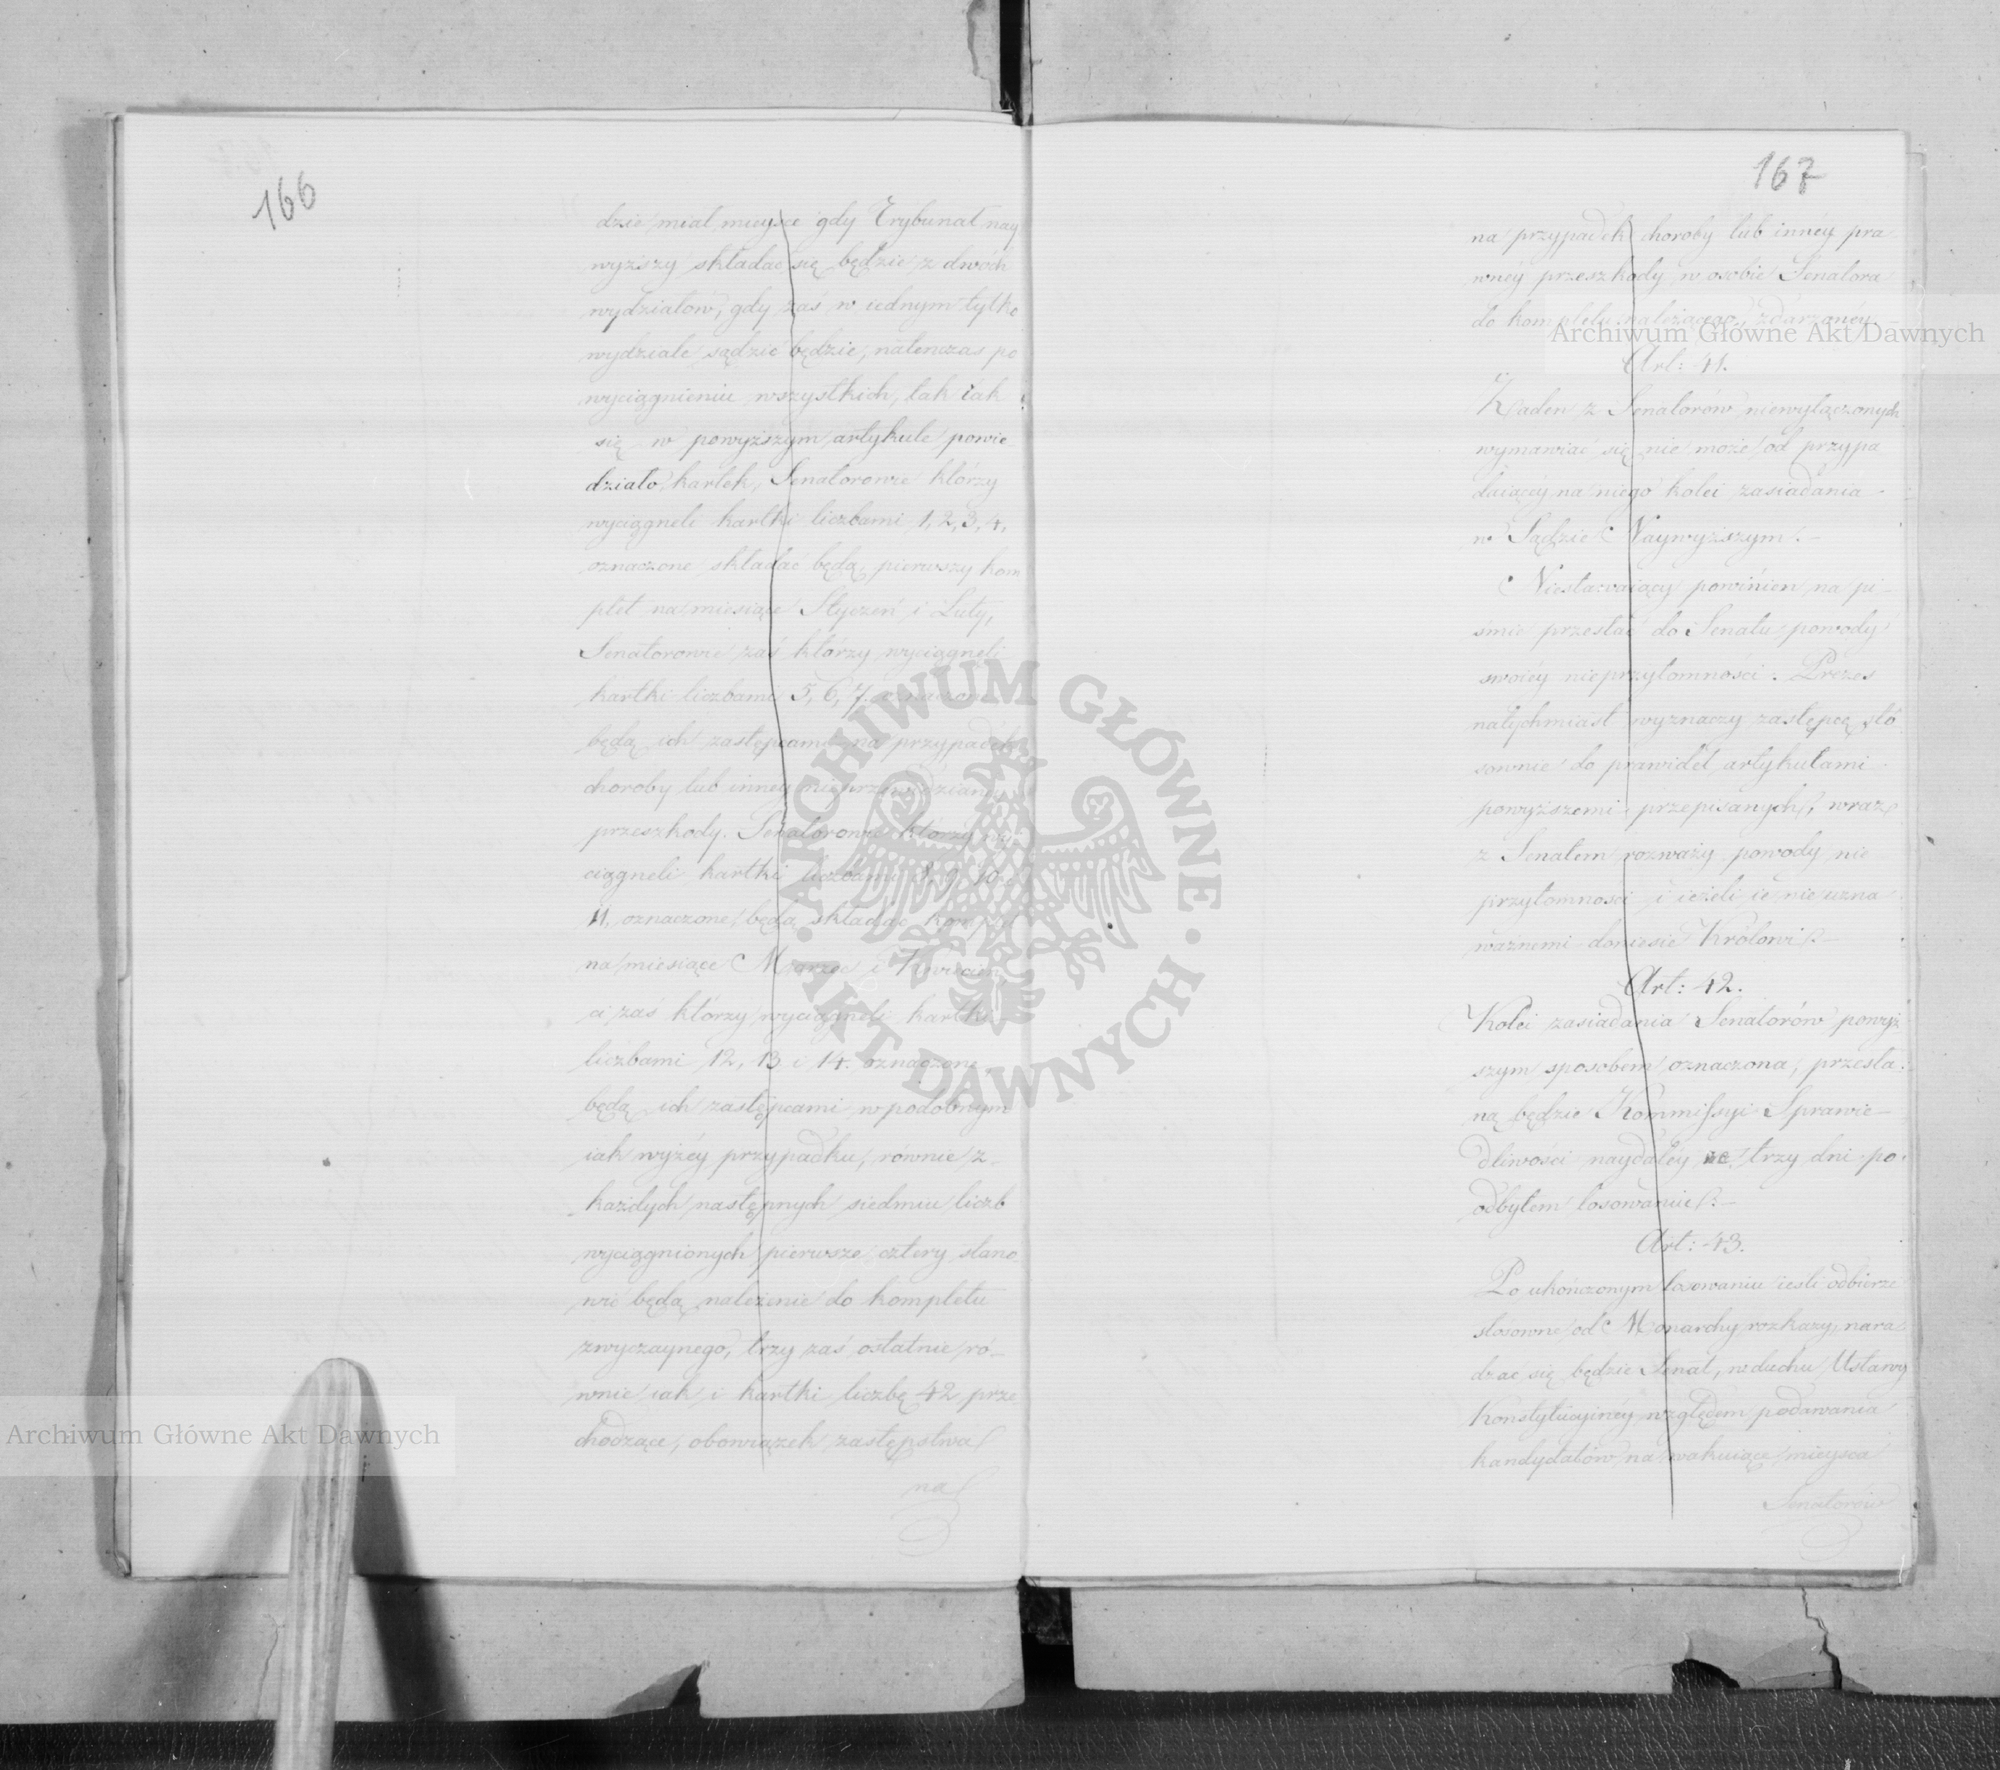 166
dzie miał mieysce gdy Trybunał nay
wyższy składac się będzie z dwóch
wydziałow, gdy zaś w iednym tylko
wydziale sądzie będzie, natenczas po
wyciągnieniu wszystkich, tak iak
się w powyższym artykule powie
działo kartek, Senatorowie którzy
wyciągneli kartki liczbami 1, 2, 3, 4,
oznaczone składac będą, pierwszy kom
plet na miesiące Styczeń i Luty,
Senatorowie zaś którzy wyciągneli
kartki liczbami 5, 6, 7. oznaczone
będą ich zastępcami na przypadek
choroby lub inney nieprzewidzianey
przeszkody. Senatorowie którzy wy
ciągneli kartki liczbami 8, 9, 10,
11, oznaczone, będą składac komplet
na miesiące Marzec i Kwiecień
ci zaś którzy wyciągneli kartki
liczbami 12, 13 i 14. oznaczone,
będą ich zastępcami w podobnym
iak wyżéy przypadku, równie z
każdych następnych siedmiu liczb
wyciągnionych pierwsze cztery stano
wić będą należenie do kompletu
zwyczaynego, trzy zaś ostatnie ró–
wnie iak i kartki liczbę 42 prze
chodzące, obowiązek zastępstwa
na
167
na przypadek choroby lub innéy pra
wnéy przeszkody w osobie Senatora
do kompletu należącego, zdarzonéy.
Art: 41.
Żaden z Senatorów niewyłączonych
wymawiać się nie może od przypa
daiącéy na niego kolei zasiadania
w Sądzie Naywyższym.–
Niestawaiący powinien na pi–
śmie przesłać do Senatu powody
swoiéy nieprzytomności. Prezes
natychmiast wyznaczy zastępcę sto
sownie do prawideł artykułami
powyższemi przepisanych, wraz
z Senatem rozważy powody nie
przytomności i ieżeli ie nie uzna
ważnemi doniesie Królowi.–
Art: 42.
Kolei zasiadania Senatorów powyż
szym sposobem oznaczona, przesła
ną będzie Kommissyi Sprawie–
dliwości naydaléy we trzy dni po
odbytem losowaniu.–
Art: 43.
Po ukończonym losowaniu iesli odbierze
stosowne od Monarchy rozkazy, nara
dzac się będzie Senat, w duchu Ustawy
Konstytucyinéy względem podawania
kandydatów na wakuiące mieysca
Senatorów
Archiwum Główne Akt Dawnych
Archiwum Główne Akt Dawnych
ARCHIWUM GŁÓWNE · AKT DAWNYCH ·